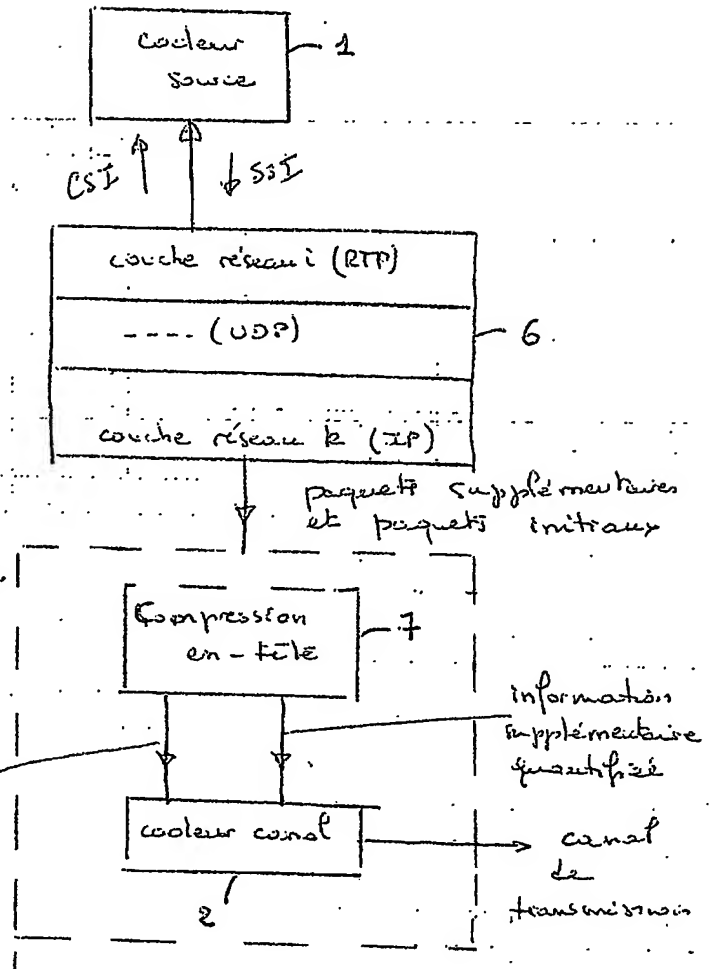 codeur
source
1
CSI
SSI
couche réseau i (RTP)
---- (UDP)
6
couche réseau k (IP)
paquets supplémentaires
et paquets initiaux
Compression
en-tête
7
information
supplémentaire
quantifiée
codeur canal
2
canal
de
transmission